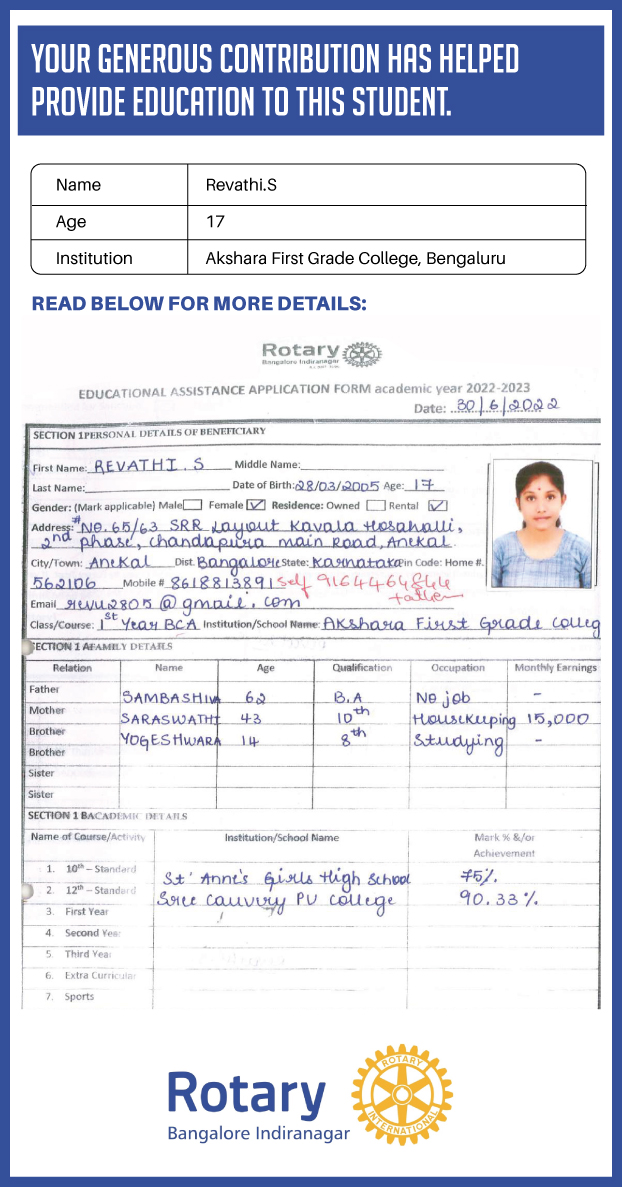 YOUR GENEROUS CONTRIBUTION HAS HELPED
PROVIDE EDUCATION TO THIS STUDENT.
Name Revathi.S
Age 17
Institution Akshara First Grade College, Bengaluru
READ BELOW FOR MORE DETAILS:
Rotary
Bangalore Indiranagar
EDUCATIONAL ASSISTANCE APPLICATION FORM academic year 2022-2023
Date: 30/6/2022
SECTION 1PERSONAL DETAILS OF BENEFICIARY
First Name: REVATHI.S Middle Name:
Last Name: Date of Birth: 28/03/2005 Age: 17
Gender: (Mark applicable) Male Female ✓ Residence: Owned Rental ✓
Address: # No. 65/63 SRR Layout Kavala Hosahalli,
2nd phase, chandapura main Road, Anekal.
City/Town: Anekal Dist. Bangalore State: Karnataka Pin Code: Home #.
562106 Mobile # 8618813891 self 9164464844
father
Email revu2805@gmail.com
Class/Course: 1st Year BCA Institution/School Name: Akshara First Grade Colleg
SECTION 1 AFAMILY DETAILS
Relation Name Age Qualification Occupation Monthly Earnings
Father SAMBASHIVA 62 B.A No job -
Mother SARASWATHI 43 10th Housekeeping 15,000
Brother YOGESHWARA 14 8th Studying -
Brother
Sister
Sister
SECTION 1 BACADEMIC DETAILS
Name of Course/Activity Institution/School Name Mark % &/or
Achievement
1. 10th – Standard St' Anne's Girls High School 75%
2. 12th – Standard Sree Cauvery PU College 90.33%
3. First Year
4. Second Year
5. Third Year
6. Extra Curricular
7. Sports
Rotary
Bangalore Indiranagar
ROTARY
INTERNATIONAL